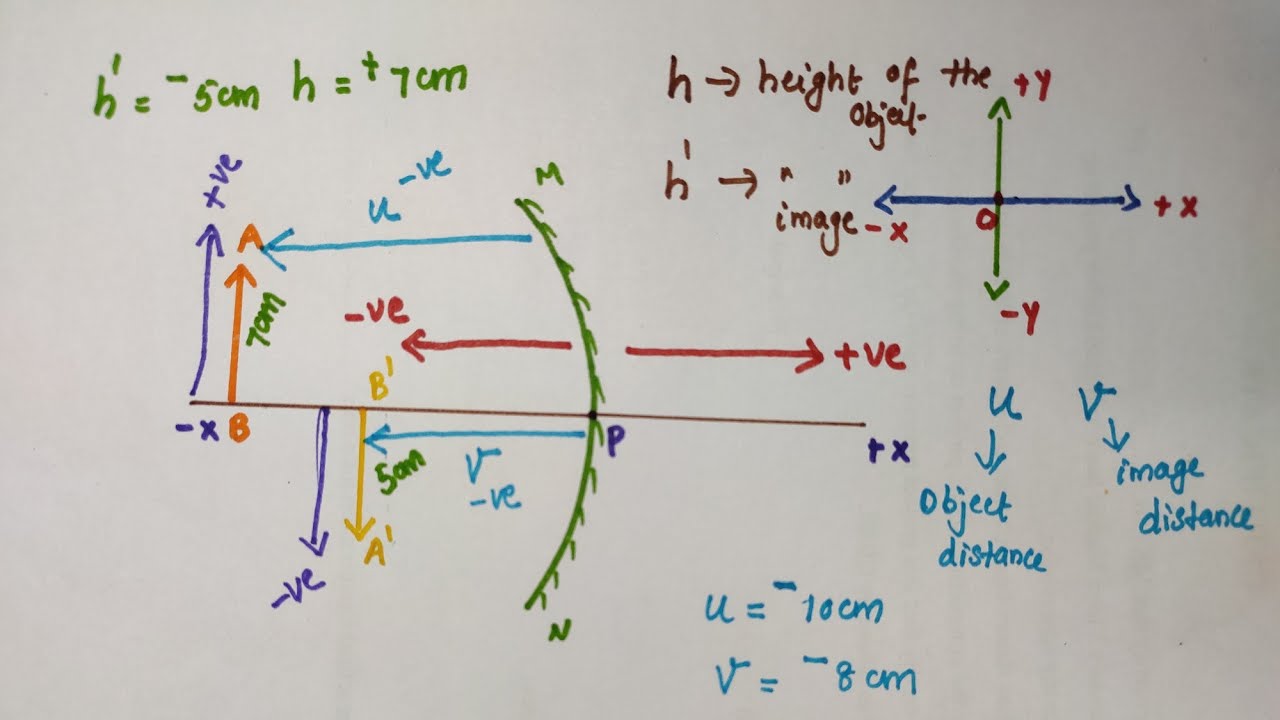 h' = -5cm h = +7cm
h → height of the
object
h' → " "
image
+Y
-X
O
+X
-Y
+ve
A
u -ve
M
7cm
-ve
+ve
B'
-X
B
P
+X
5cm
V
-ve
A'
-ve
N
u
V
object
distance
image
distance
u = -10cm
V = -8cm